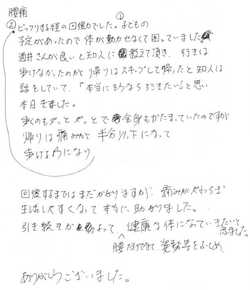 腰痛
①
②ビックリする程の回復力でした。子どもの
予定があったので体が動かせなくて困っていました。
酒井さんが良いと知人に教えて頂き、行きは
歩けなかったのが帰りはスキップして帰ったと知人は
話をしていて「本当にそうなら行きたい」と思い
本日きました。
私のもずっとずっとで
帰りは痛みが半分以下になって
歩けるようになり
回復するまではまだかかりますが、痛みがやわらぎ
生活しやすくなって本当に助かりました。
引き続き 健康な体になっていきたいと
思いました。
腰だけでなく姿勢等をふくめ
ありがとうございました。